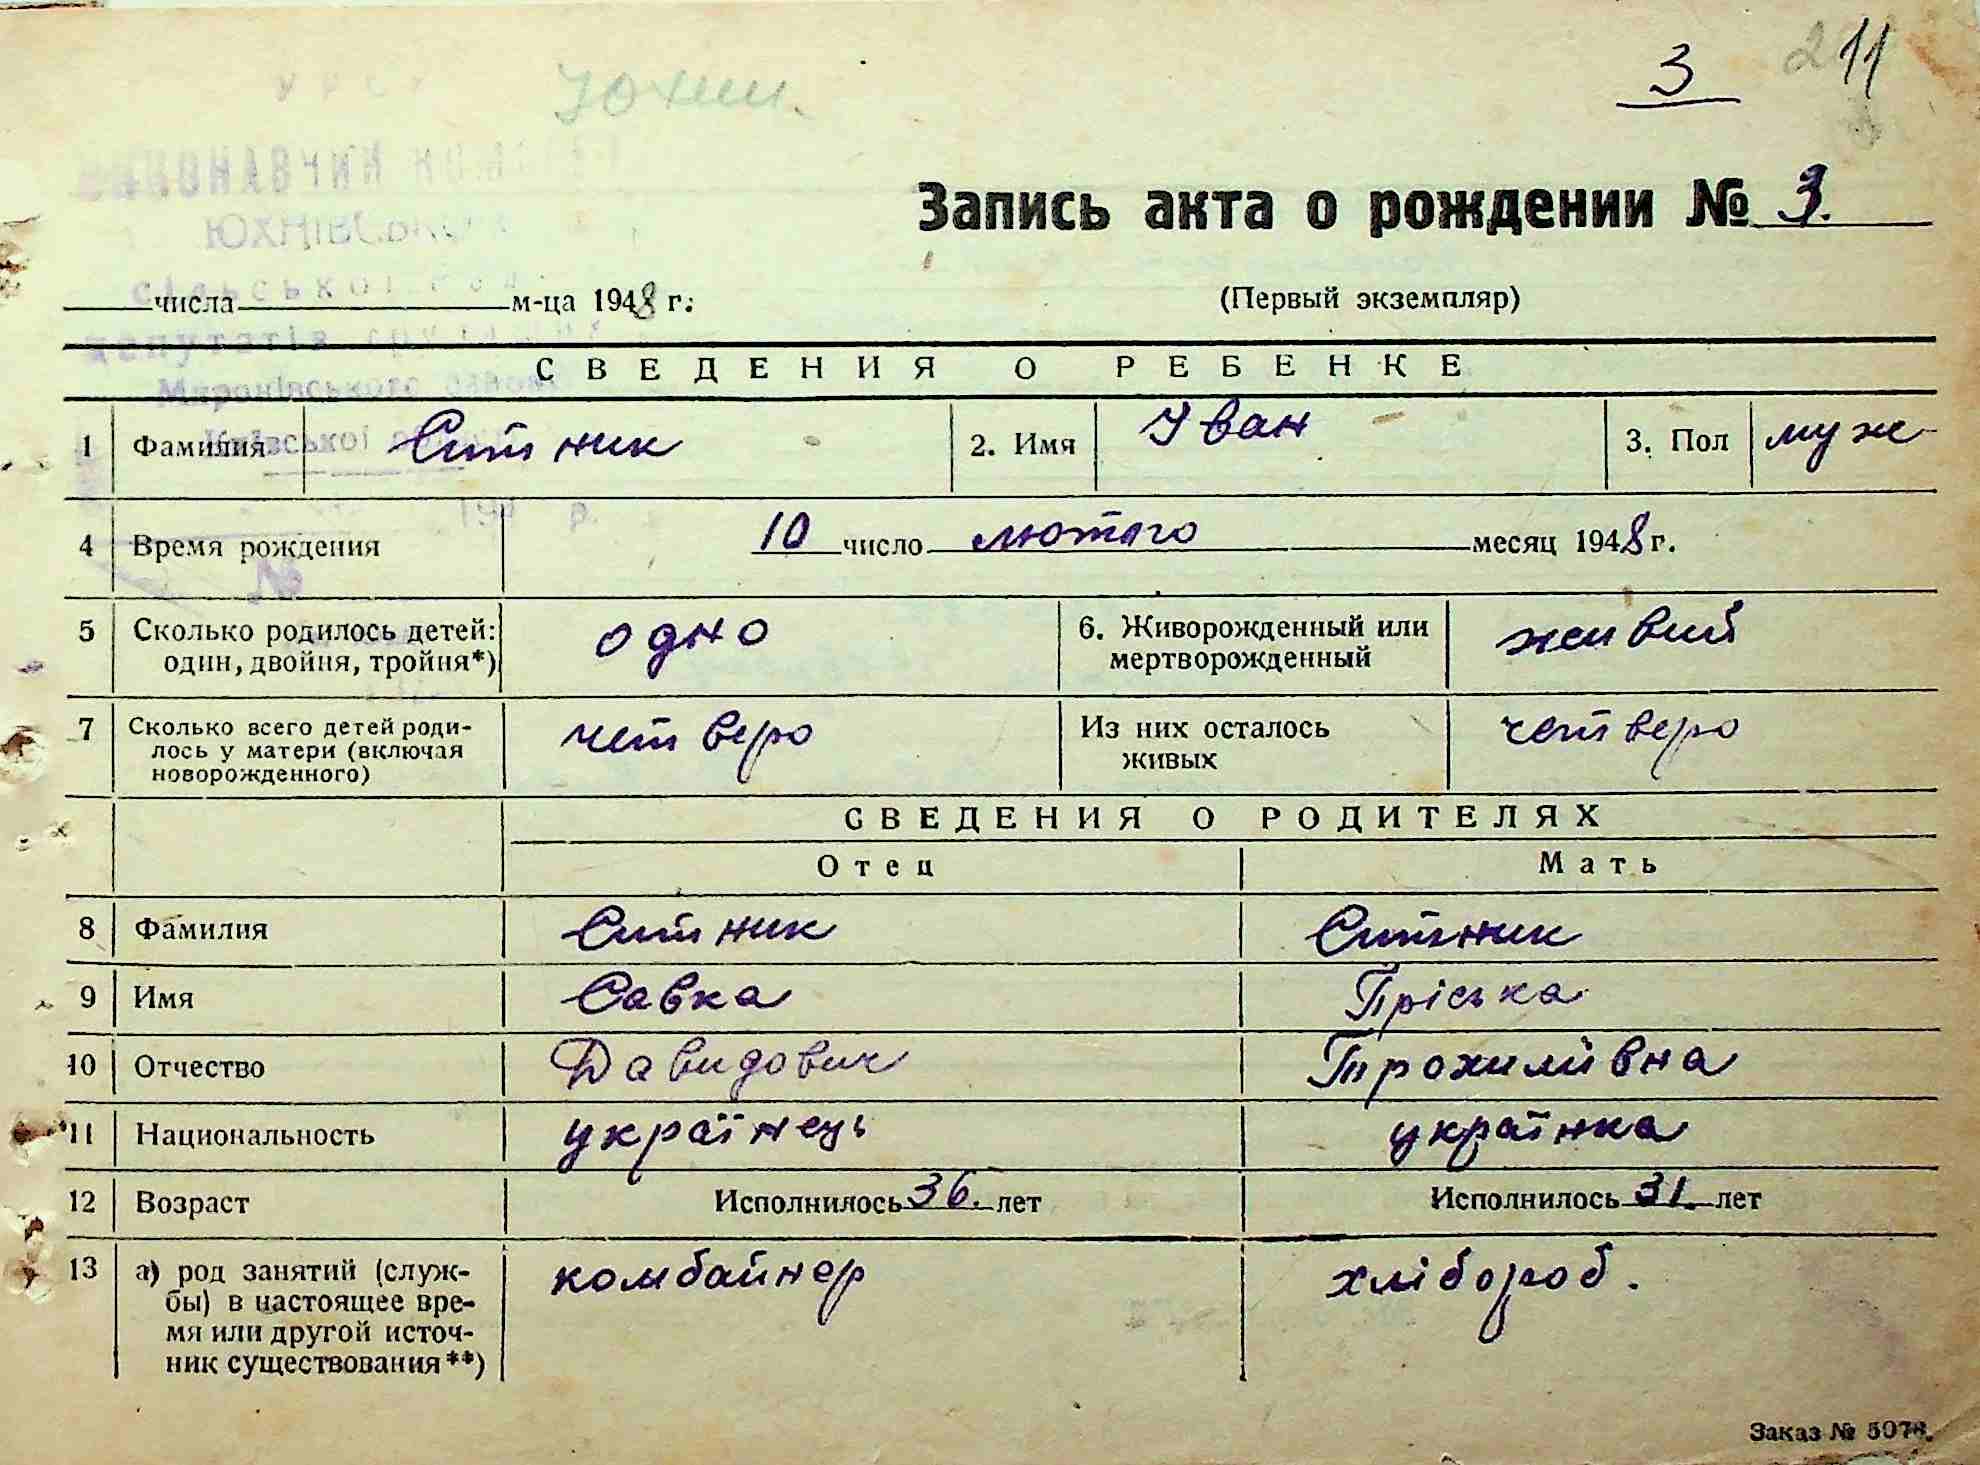 3 211
Юхни.
УРСР
ВИКОНАВЧИЙ КОМІТЕТ
ЮХНІВСЬКОЇ
сільської Ради
депутатів трудящих
Миронівського району
Київської області
194 р.
№
Запись акта о рождении № 3.
числа м-ца 1948 г. (Первый экземпляр)
СВЕДЕНИЯ О РЕБЕНКЕ
1 Фамилия Ситник 2. Имя Іван 3. Пол муж
4 Время рождения 10 число лютого месяц 1948 г.
5 Сколько родилось детей: один, двойня, тройня*) одно 6. Живорожденный или мертворожденный живий
7 Сколько всего детей роди-
лось у матери (включая
новорожденного) четверо Из них осталось живых четверо
СВЕДЕНИЯ О РОДИТЕЛЯХ
Отец Мать
8 Фамилия Ситник Ситник
9 Имя Савка Пріська
10 Отчество Давидович Трохимівна
11 Национальность українець українка
12 Возраст Исполнилось 36. лет Исполнилось 31. лет
13 а) род занятий (служ-
бы) в настоящее вре-
мя или другой источ-
ник существования**) комбайнер хлібороб.
Заказ № 5078.